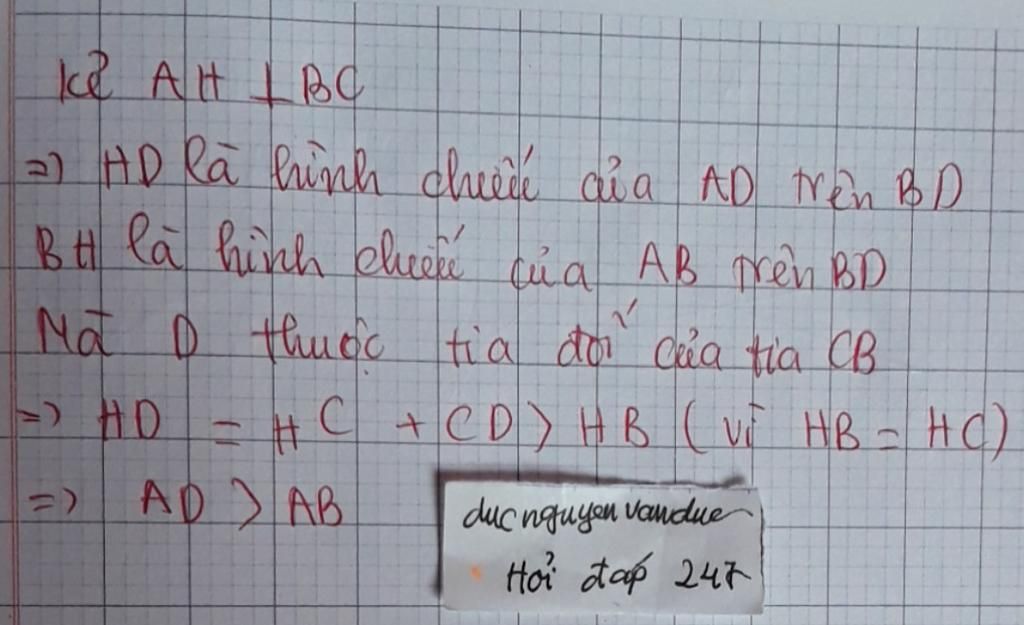 Kẻ AH ⊥ BC
=> HD là hình chiếu của AD trên BD
BH là hình chiếu của AB trên BD
Mà D thuộc tia đối của tia CB
=> HD = HC + CD > HB ( vì HB = HC )
=> AD > AB
ducnguyenvanduc
Hỏi đáp 247